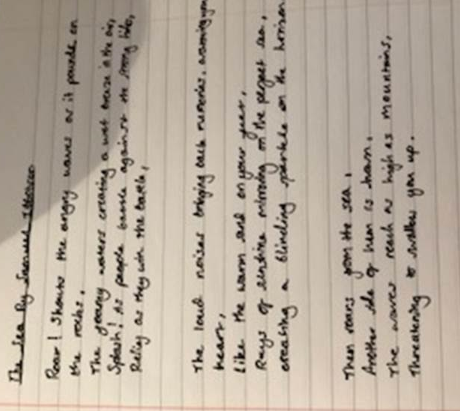 The Sea By Samuel
Roar! Shouts the angry waves as it pounds on
the rocks.
The groany waters creating a wet breeze in the air,
Splash! As people battle against the strong tides,
Relief as they win the battle,
The loud noises bringing back memories, warming your
heart,
Like the warm sand on your feet,
Rays of sunshine mirroring on the perfect sea,
creating a blinding sparkle on the horizon
Then roars from the sea,
Another side of him is shown,
The waves reach as high as mountains,
Threatening to swallow you up.